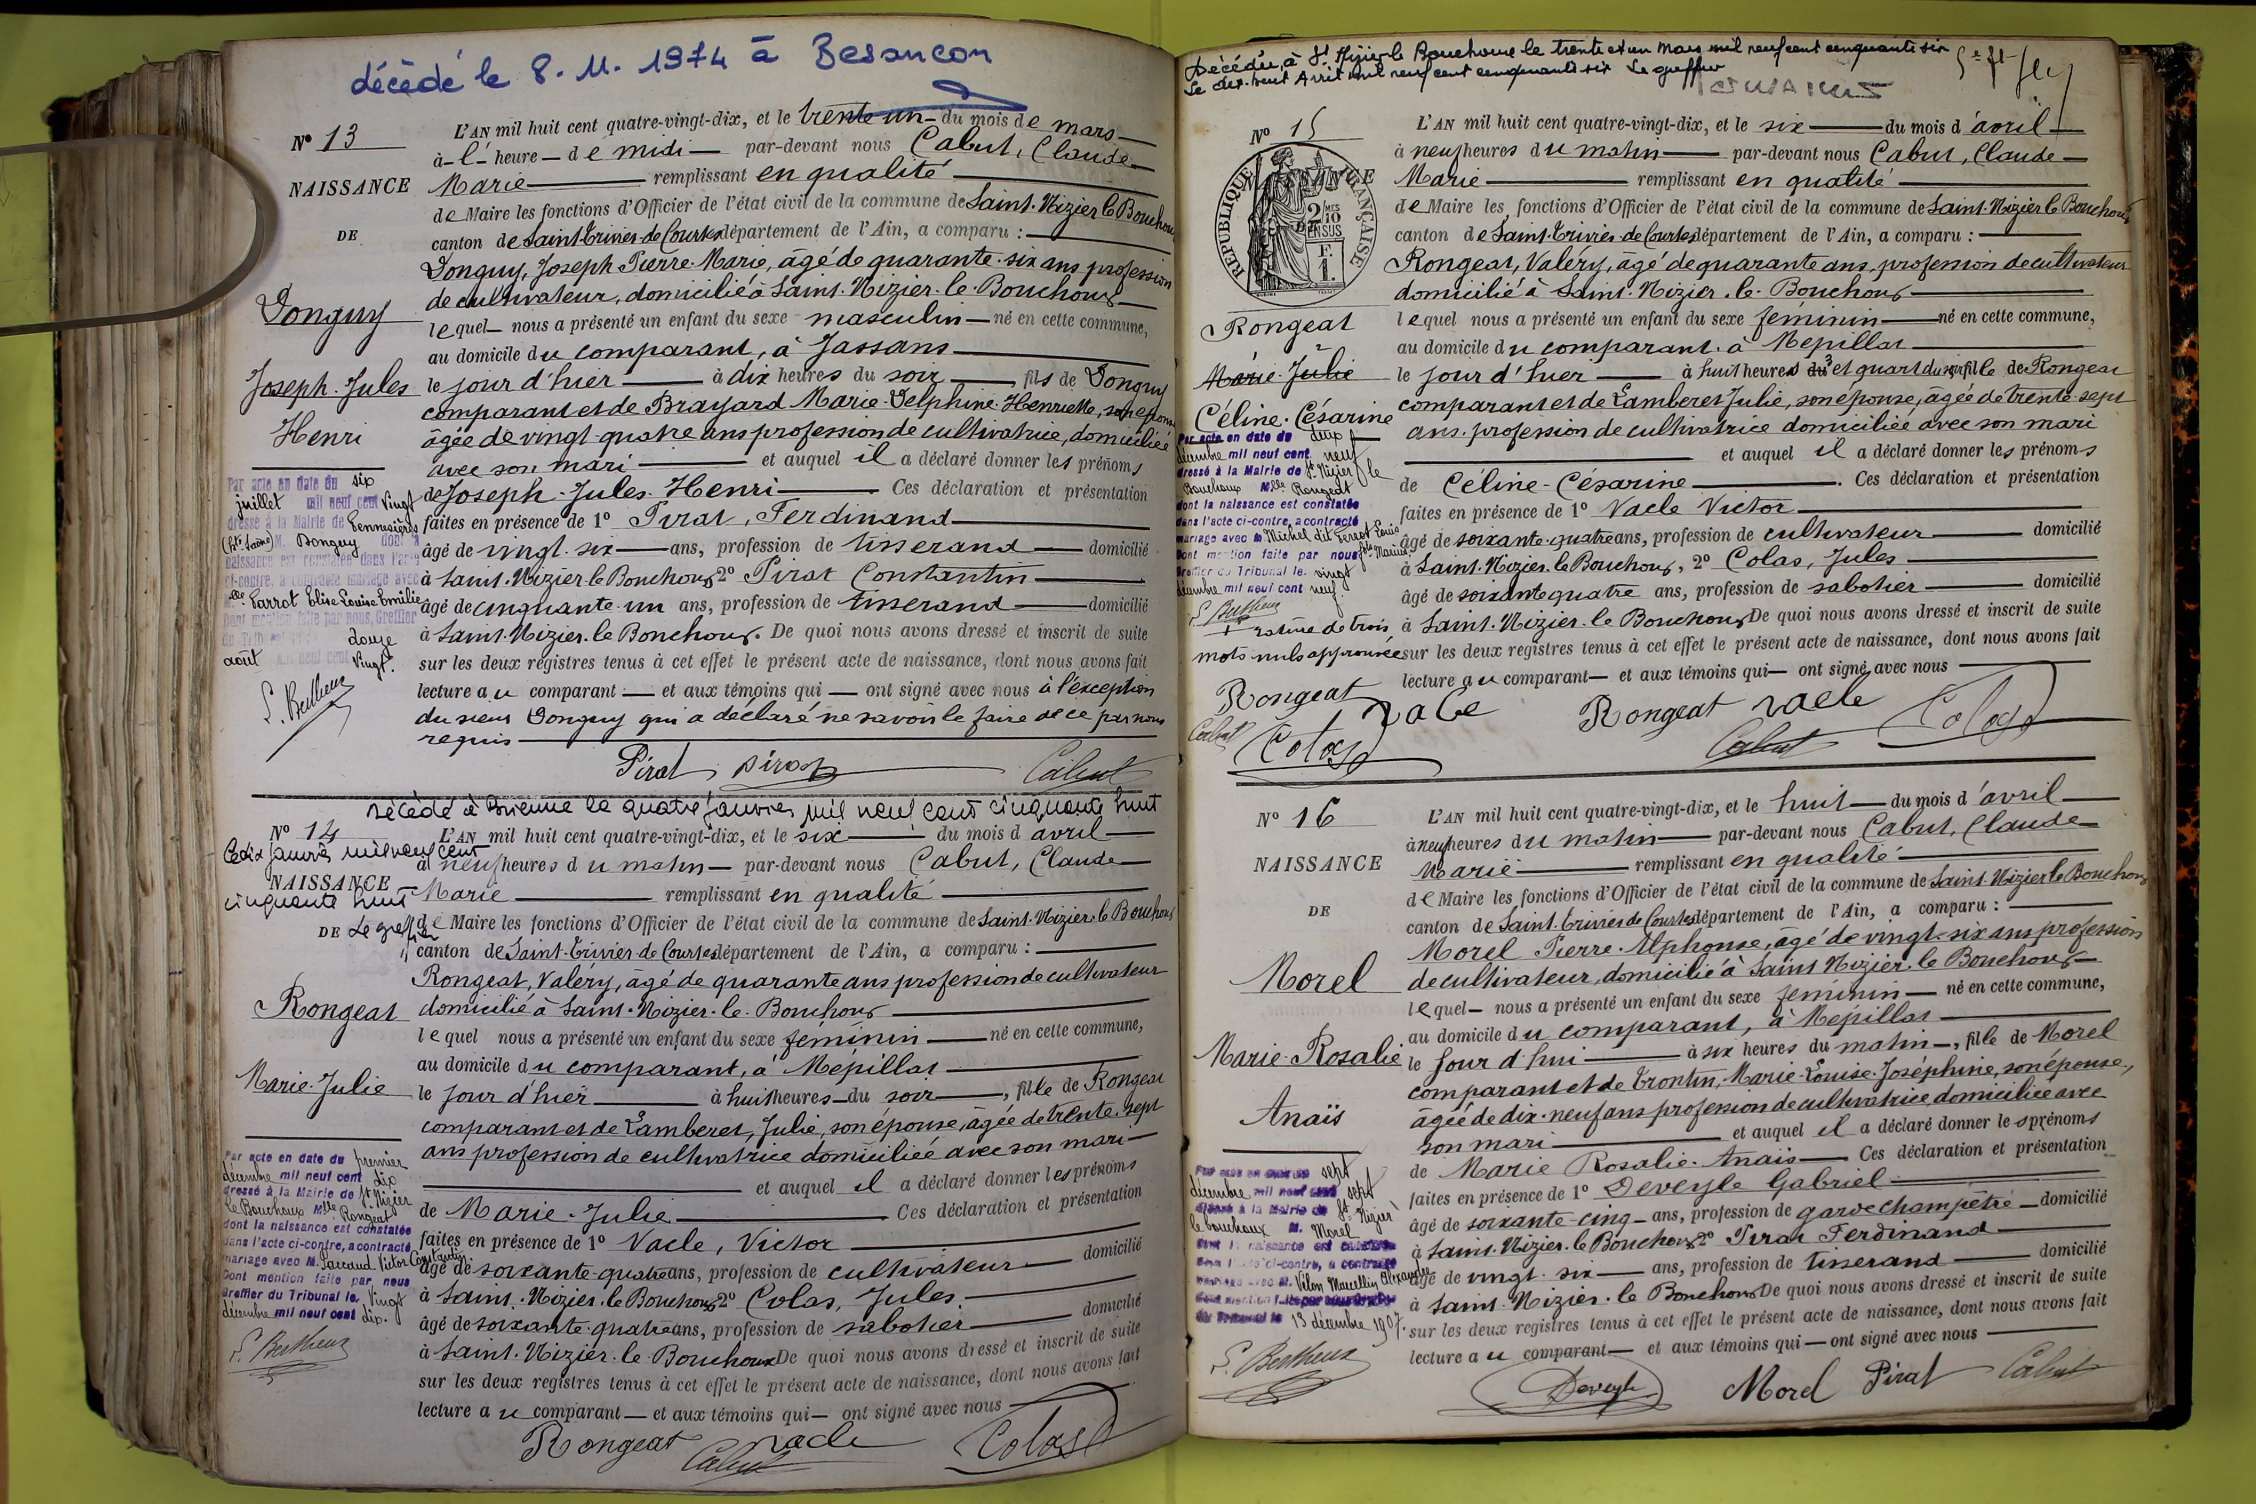 décédé le 8. 11. 1974 à Besançon
N° 13
NAISSANCE
DE
Donguy
Joseph. Jules
Henri
L'AN mil huit cent quatre-vingt-dix, et le trente un du mois de mars
à l' heure de midi par-devant nous Cabut, Claude
Marie remplissant en qualité
de Maire les fonctions d'Officier de l'état civil de la commune de Saint-Nizier le Bouchoux
canton de Saint-Trivier-de-Courtes département de l'Ain, a comparu :
Donguy, Joseph Pierre Marie, âgé de quarante-six ans profession
de cultivateur, domicilié à Saint-Nizier-le-Bouchoux
lequel nous a présenté un enfant du sexe masculin né en cette commune,
au domicile du comparant, à Jassans
le jour d'hier à dix heures du soir, fils de Donguy
comparant et de Brayard Marie-Delphine-Henriette, son épouse
âgée de vingt-quatre ans profession de cultivatrice, domiciliée
avec son mari et auquel il a déclaré donner les prénoms
de Joseph-Jules-Henri Ces déclaration et présentation
faites en présence de 1° Pirat, Ferdinand
âgé de vingt-six ans, profession de tisserand domicilié
à Saint-Nizier-le Bouchoux 2° Pirat Constantin
âgé de cinquante-un ans, profession de tisserand domicilié
à Saint-Nizier-le Bouchoux. De quoi nous avons dressé et inscrit de suite
sur les deux registres tenus à cet effet le présent acte de naissance, dont nous avons fait
lecture au comparant et aux témoins qui ont signé avec nous à l'exception
du sieur Donguy qui a déclaré ne savoir le faire de ce par nous
requis
Pirat Pirat Cabut
Par acte en date du six
juillet mil neuf cent vingt
dressé à la Mairie de
(Hte Saône) M. Donguy dont la
naissance est constatée dans l'acte
ci-contre, a contracté mariage avec
Mlle Parrot Elise Louise Emilie
Dont mention faite par nous, Greffier
du Tribunal le douze
août mil neuf cent vingt.
S. Bertheux
décédé à Brienne le quatre janvier mil neuf cent cinquante huit
N° 14
Le dix janvier mil neuf cent
NAISSANCE
cinquante huit
DE Le greffier
Rongeat
Marie-Julie
L'AN mil huit cent quatre-vingt-dix, et le six du mois d'avril
à neuf heures du matin par-devant nous Cabut, Claude
Marie remplissant en qualité
de Maire les fonctions d'Officier de l'état civil de la commune de Saint-Nizier le Bouchoux
canton de Saint-Trivier-de-Courtes département de l'Ain, a comparu :
Rongeat, Valéry, âgé de quarante ans profession de cultivateur
domicilié à Saint-Nizier-le-Bouchoux
lequel nous a présenté un enfant du sexe féminin né en cette commune,
au domicile du comparant, à Mépillat
le jour d'hier à huit heures du soir, fille de Rongeat
comparant et de Lamberet, Julie, son épouse, âgée de trente-sept
ans profession de cultivatrice domiciliée avec son mari
et auquel il a déclaré donner les prénoms
de Marie-Julie Ces déclaration et présentation
faites en présence de 1° Vacle, Victor
âgé de soixante-quatre ans, profession de cultivateur domicilié
à Saint-Nizier-le Bouchoux 2° Colas, Jules
âgé de soixante-quatre ans, profession de sabotier domicilié
à Saint-Nizier-le-Bouchoux De quoi nous avons dressé et inscrit de suite
sur les deux registres tenus à cet effet le présent acte de naissance, dont nous avons fait
lecture au comparant et aux témoins qui ont signé avec nous
Rongeat Cabut Vacle Colas
Par acte en date du premier
décembre mil neuf cent dix
dressé à la Mairie de St Nizier
le Bouchoux Mlle Rongeat
dont la naissance est constatée
dans l'acte ci-contre, a contracté
mariage avec M. Victor Constantin
Dont mention faite par nous
Greffier du Tribunal le vingt
décembre mil neuf cent dix.
S. Bertheux
Décédée à St Nizier le Bouchoux le trente et un Mars mil neuf cent cinquante six
Le dix-huit Avril mil neuf cent cinquante six Le greffier
N° 15
NAISSANCE
RÉPUBLIQUE FRANÇAISE
Rongeat
Marie-Julie
Céline-Césarine
L'AN mil huit cent quatre-vingt-dix, et le six du mois d'avril
à neuf heures du matin par-devant nous Cabut, Claude
Marie remplissant en qualité
de Maire les fonctions d'Officier de l'état civil de la commune de Saint-Nizier le Bouchoux
canton de Saint-Trivier-de-Courtes département de l'Ain, a comparu :
Rongeat, Valéry, âgé de quarante ans, profession de cultivateur
domicilié à Saint-Nizier-le-Bouchoux
lequel nous a présenté un enfant du sexe féminin né en cette commune,
au domicile du comparant à Mépillat
le jour d'hier à huit heures du et quart du soir fille de Rongeat
comparant et de Lamberet Julie, son épouse, âgée de trente-sept
ans profession de cultivatrice domiciliée avec son mari
et auquel il a déclaré donner les prénoms
de Céline-Césarine. Ces déclaration et présentation
faites en présence de 1° Vacle Victor
âgé de soixante-quatre ans, profession de cultivateur domicilié
à Saint-Nizier-le Bouchoux, 2° Colas, Jules
âgé de soixante quatre ans, profession de sabotier domicilié
à Saint-Nizier-le Bouchoux De quoi nous avons dressé et inscrit de suite
sur les deux registres tenus à cet effet le présent acte de naissance, dont nous avons fait
lecture au comparant et aux témoins qui ont signé avec nous
Rongeat Vacle Colas Cabut
Par acte en date du deux
décembre mil neuf cent neuf
dressé à la Mairie de St Nizier le
Bouchoux Mlle Rongeat
dont la naissance est constatée
dans l'acte ci-contre, a contracté
mariage avec M. Michel dit Louis
Dont mention faite par nous Marius
Greffier du Tribunal le vingt
décembre mil neuf cent neuf
S. Bertheux
rature de trois
mots nuls approuvée
Rongeat Vacle
Cabut Colas
N° 16
NAISSANCE
DE
Morel
Marie-Rosalie
Anaïs
L'AN mil huit cent quatre-vingt-dix, et le huit du mois d'avril
à neuf heures du matin par-devant nous Cabut, Claude
Marie remplissant en qualité
de Maire les fonctions d'Officier de l'état civil de la commune de Saint-Nizier le Bouchoux
canton de Saint-Trivier de Courtes département de l'Ain, a comparu :
Morel Pierre-Alphonse, âgé de vingt-six ans profession
de cultivateur, domicilié à Saint Nizier-le Bouchoux
lequel nous a présenté un enfant du sexe féminin né en cette commune,
au domicile du comparant, à Mépillat
le jour d'hui à six heures du matin, fille de Morel
comparant et de Trontin, Marie-Louise-Joséphine, son épouse,
âgée de dix-neuf ans profession de cultivatrice, domiciliée avec
son mari et auquel il a déclaré donner les prénoms
de Marie Rosalie-Anaïs Ces déclaration et présentation
faites en présence de 1° Deveyle Gabriel
âgé de soixante-cinq ans, profession de garde champêtre domicilié
à Saint-Nizier-le Bouchoux 2° Pirat Ferdinand
âgé de vingt-six ans, profession de tisserand domicilié
à Saint-Nizier-le Bouchoux De quoi nous avons dressé et inscrit de suite
sur les deux registres tenus à cet effet le présent acte de naissance, dont nous avons fait
lecture au comparant et aux témoins qui ont signé avec nous
Deveyle Morel Pirat Cabut
Par acte en date du sept
décembre mil neuf cent sept
dressé à la Mairie de St Nizier
le bouchoux M. Morel
dont la naissance est constatée
dans l'acte ci-contre, a contracté
mariage avec M. Vilon Marcellin Alexandre
Dont mention faite par nous Greffier
du Tribunal le 13 décembre 1907.
S. Bertheux